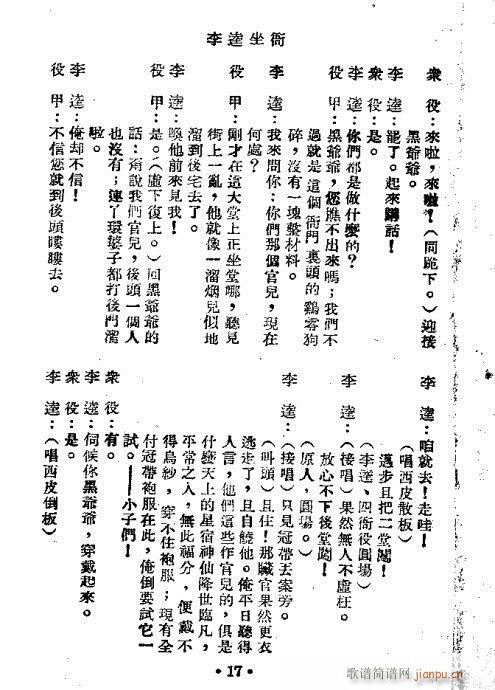 李逵坐衙
衆　役：來啦，來啦！（同跪下。）迎接
黑爺爺。
李　逵：罷了。起來講話！
衆　役：是。
李　逵：你們都是做什麼的？
役　甲：黑爺爺，您瞧不出來嗎；我們不
過就是這個衙門裏頭的鷄零狗
碎，沒有一塊整材料。
李　逵：我來問你：你們那個官兒，現在
何處？
役　甲：剛才在這大堂上正坐堂哪，聽見
街上一亂，他就像一溜烟兒似地
溜到後宅去了。
李　逵：喚他前來見我！
役　甲：是。（虛下復上。）回黑爺爺的
話：甭說我們官兒，後頭一個人
也沒有；連丫環婆子都打後門溜
啦。
李　逵：俺却不信！
役　甲：不信您就到後頭瞜瞜去。
李　逵：咱就去！走哇！
（唱西皮散板）
邁步且把二堂闖！
（李逵、四衙役圓場）
李　逵：（接唱）果然無人不虛枉。
放心不下後堂闖！
（原人，圓場。）
李　逵：（接唱）只見冠帶丟案旁。
（叫頭）且住！那贓官果然更衣
逃走了，且自饒他。俺平日聽得
人言，他們這些作官兒的，俱是
什麼天上的星宿神仙降世臨凡，
平常之人，無此福分，便戴不
得烏紗，穿不住袍服；現有全
付冠帶袍服在此，俺倒要試它一
試。——小子們！
衆　役：有。
李　逵：伺候你黑爺爺，穿戴起來。
衆　役：是。
李　逵：（唱西皮倒板）
·17·
歌谱简谱网
jianpu.cn